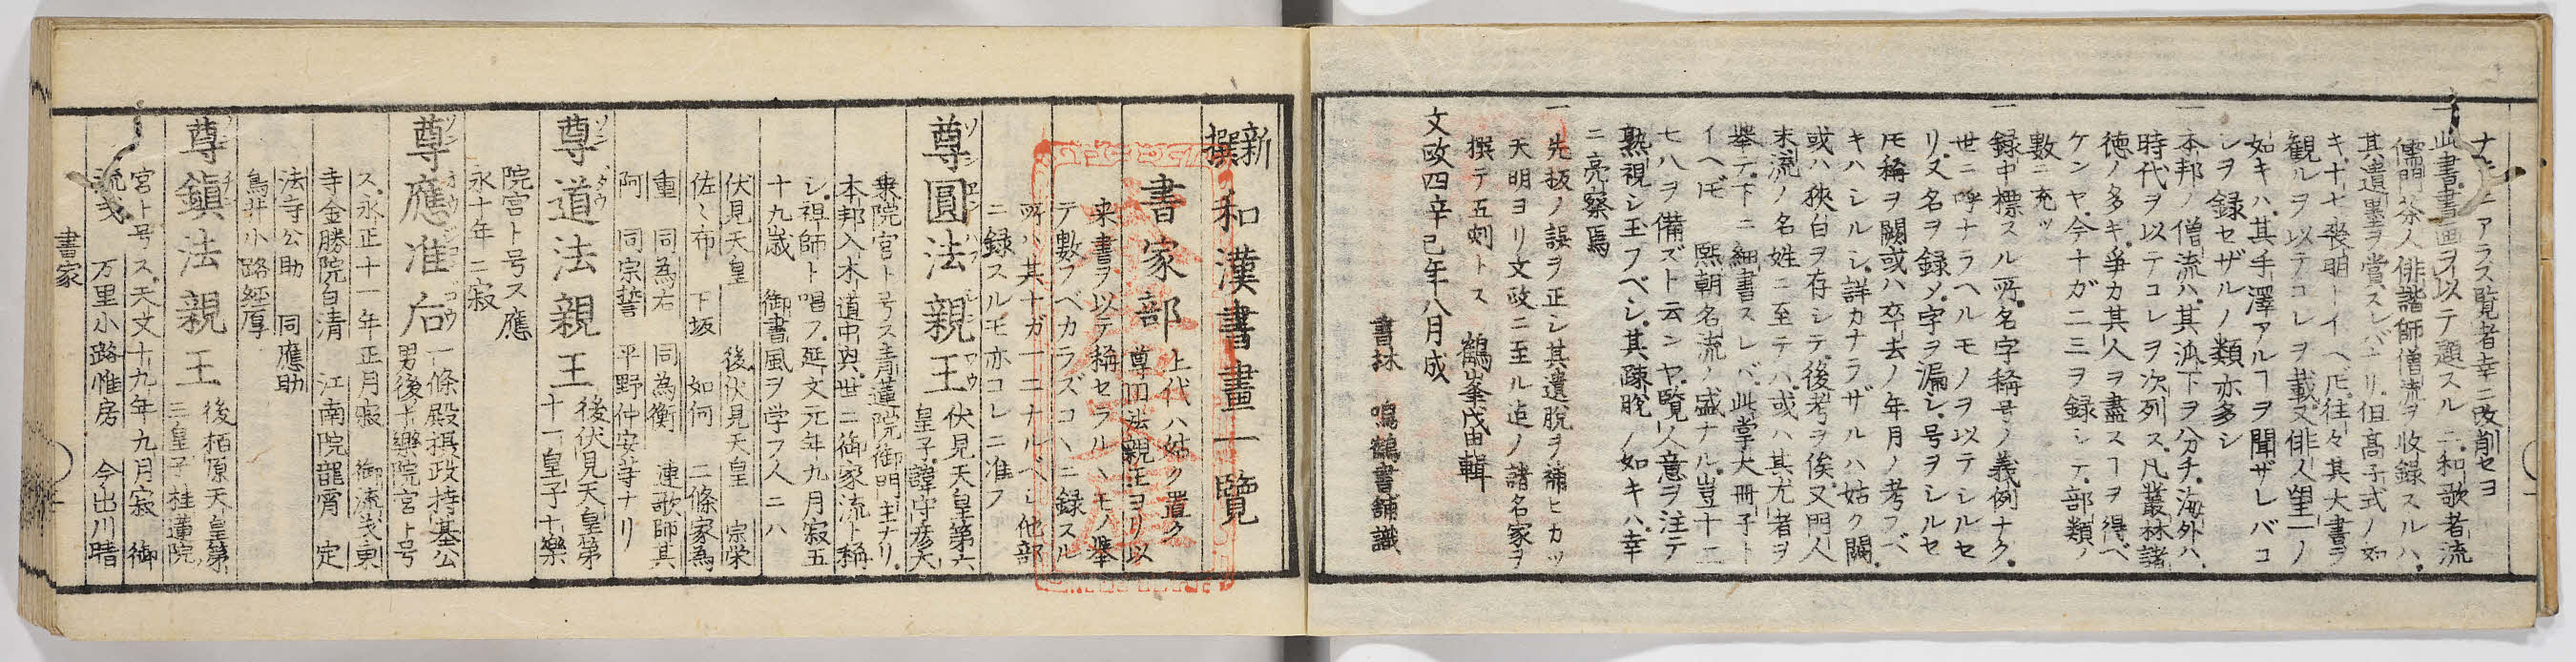 ナキニアラス覧者幸ニ改削セヨ
一此書書画ヲ以テ題スルニ和歌者流
儒門茶人俳諧師僧流ヲ收録スルハ
其遺墨ヲ賞スレバナリ但高子式ノ如
キ十七発明トイヘ𪜈往々其大書ヲ
観ルヲ以テコレヲ載又俳人望一ノ
如キハ其手澤アルヿヲ聞ザレバコ
レヲ録セザルノ類亦多シ
一本邦ノ僧流ハ其派下ヲ分チ海外ハ
時代ヲ以テコレヲ次列ス凡叢林諸
徳ノ多キ争カ其人ヲ盡スヿヲ得ベ
ケンヤ今十ガ二三ヲ録シテ部類ノ
數ニ充ツ
一録中標スル所名字稱号ノ義例ナク
世ニ呼ナラヘルモノヲ以テシルセ
リ又名ヲ録メ字ヲ漏シ号ヲシルセ
𪜈稱ヲ闕或ハ卒去ノ年月ノ考フベ
キハシルシ詳カナラザルハ姑ク闕
或ハ狭白ヲ存シテ後考ヲ俟又門人
末流ノ名姓ニ至テハ或ハ其尤者ヲ
舉テ下ニ細書スレバ此掌大冊子ト
イヘ𪜈 熙朝名流ノ盛ナル豈十二
七八ヲ備ズト云ンヤ覽人意ヲ注テ
熟視シ玉フベシ其疎脱ノ如キハ幸
ニ亮察焉
一先板ノ誤ヲ正シ其遺脱ヲ補ヒカツ
天明ヨリ文政ニ至ル迠ノ諸名家ヲ
撰テ五刻トス 鶴峯戊申輯
文政四辛巳年八月成
書林 鳴鶴書鋪識
新撰和漢書畫一覽
書家部 上代ハ姑ク置ク
尊円法親王ヨリ以
来書ヲ以テ稱セラルヽモノ舉
テ數フベカラズコヽニ録スル
所ハ其十ガ一ニナルベシ他部
ニ録スルモ亦コレニ准フ
尊圓法親王 伏見天皇第六
皇子諱守彦大
乗院宮ト号ス青蓮院御門主ナリ
本邦入木道中興世ニ御家流ト稱
シ祖師ト唱フ延文元年九月寂五
十九歳 御書風ヲ学フ人ニハ
伏見天皇 後伏見天皇 宗栄
佐々布 下坂 如何 二條家為
重 同為右 同為衡 連歌師其
阿 同宗誓 平野仲安等ナリ
尊道法親王 後伏見天皇第
十一皇子十樂
院宮ト号ス應
永十年二寂
尊應准后 一條殿祺政持基公
男後十樂院宮ト号
ス永正十一年正月寂 御流弐東
寺金勝院自清 江南院龍霄 定
法寺公助 同應助
鳥井小路経厚
尊鎮法親王 後栢原天皇第
三皇子桂蓮院
宮ト号ス天文十九年九月寂 御
流弐 万里小路惟房 今出川晴
書家